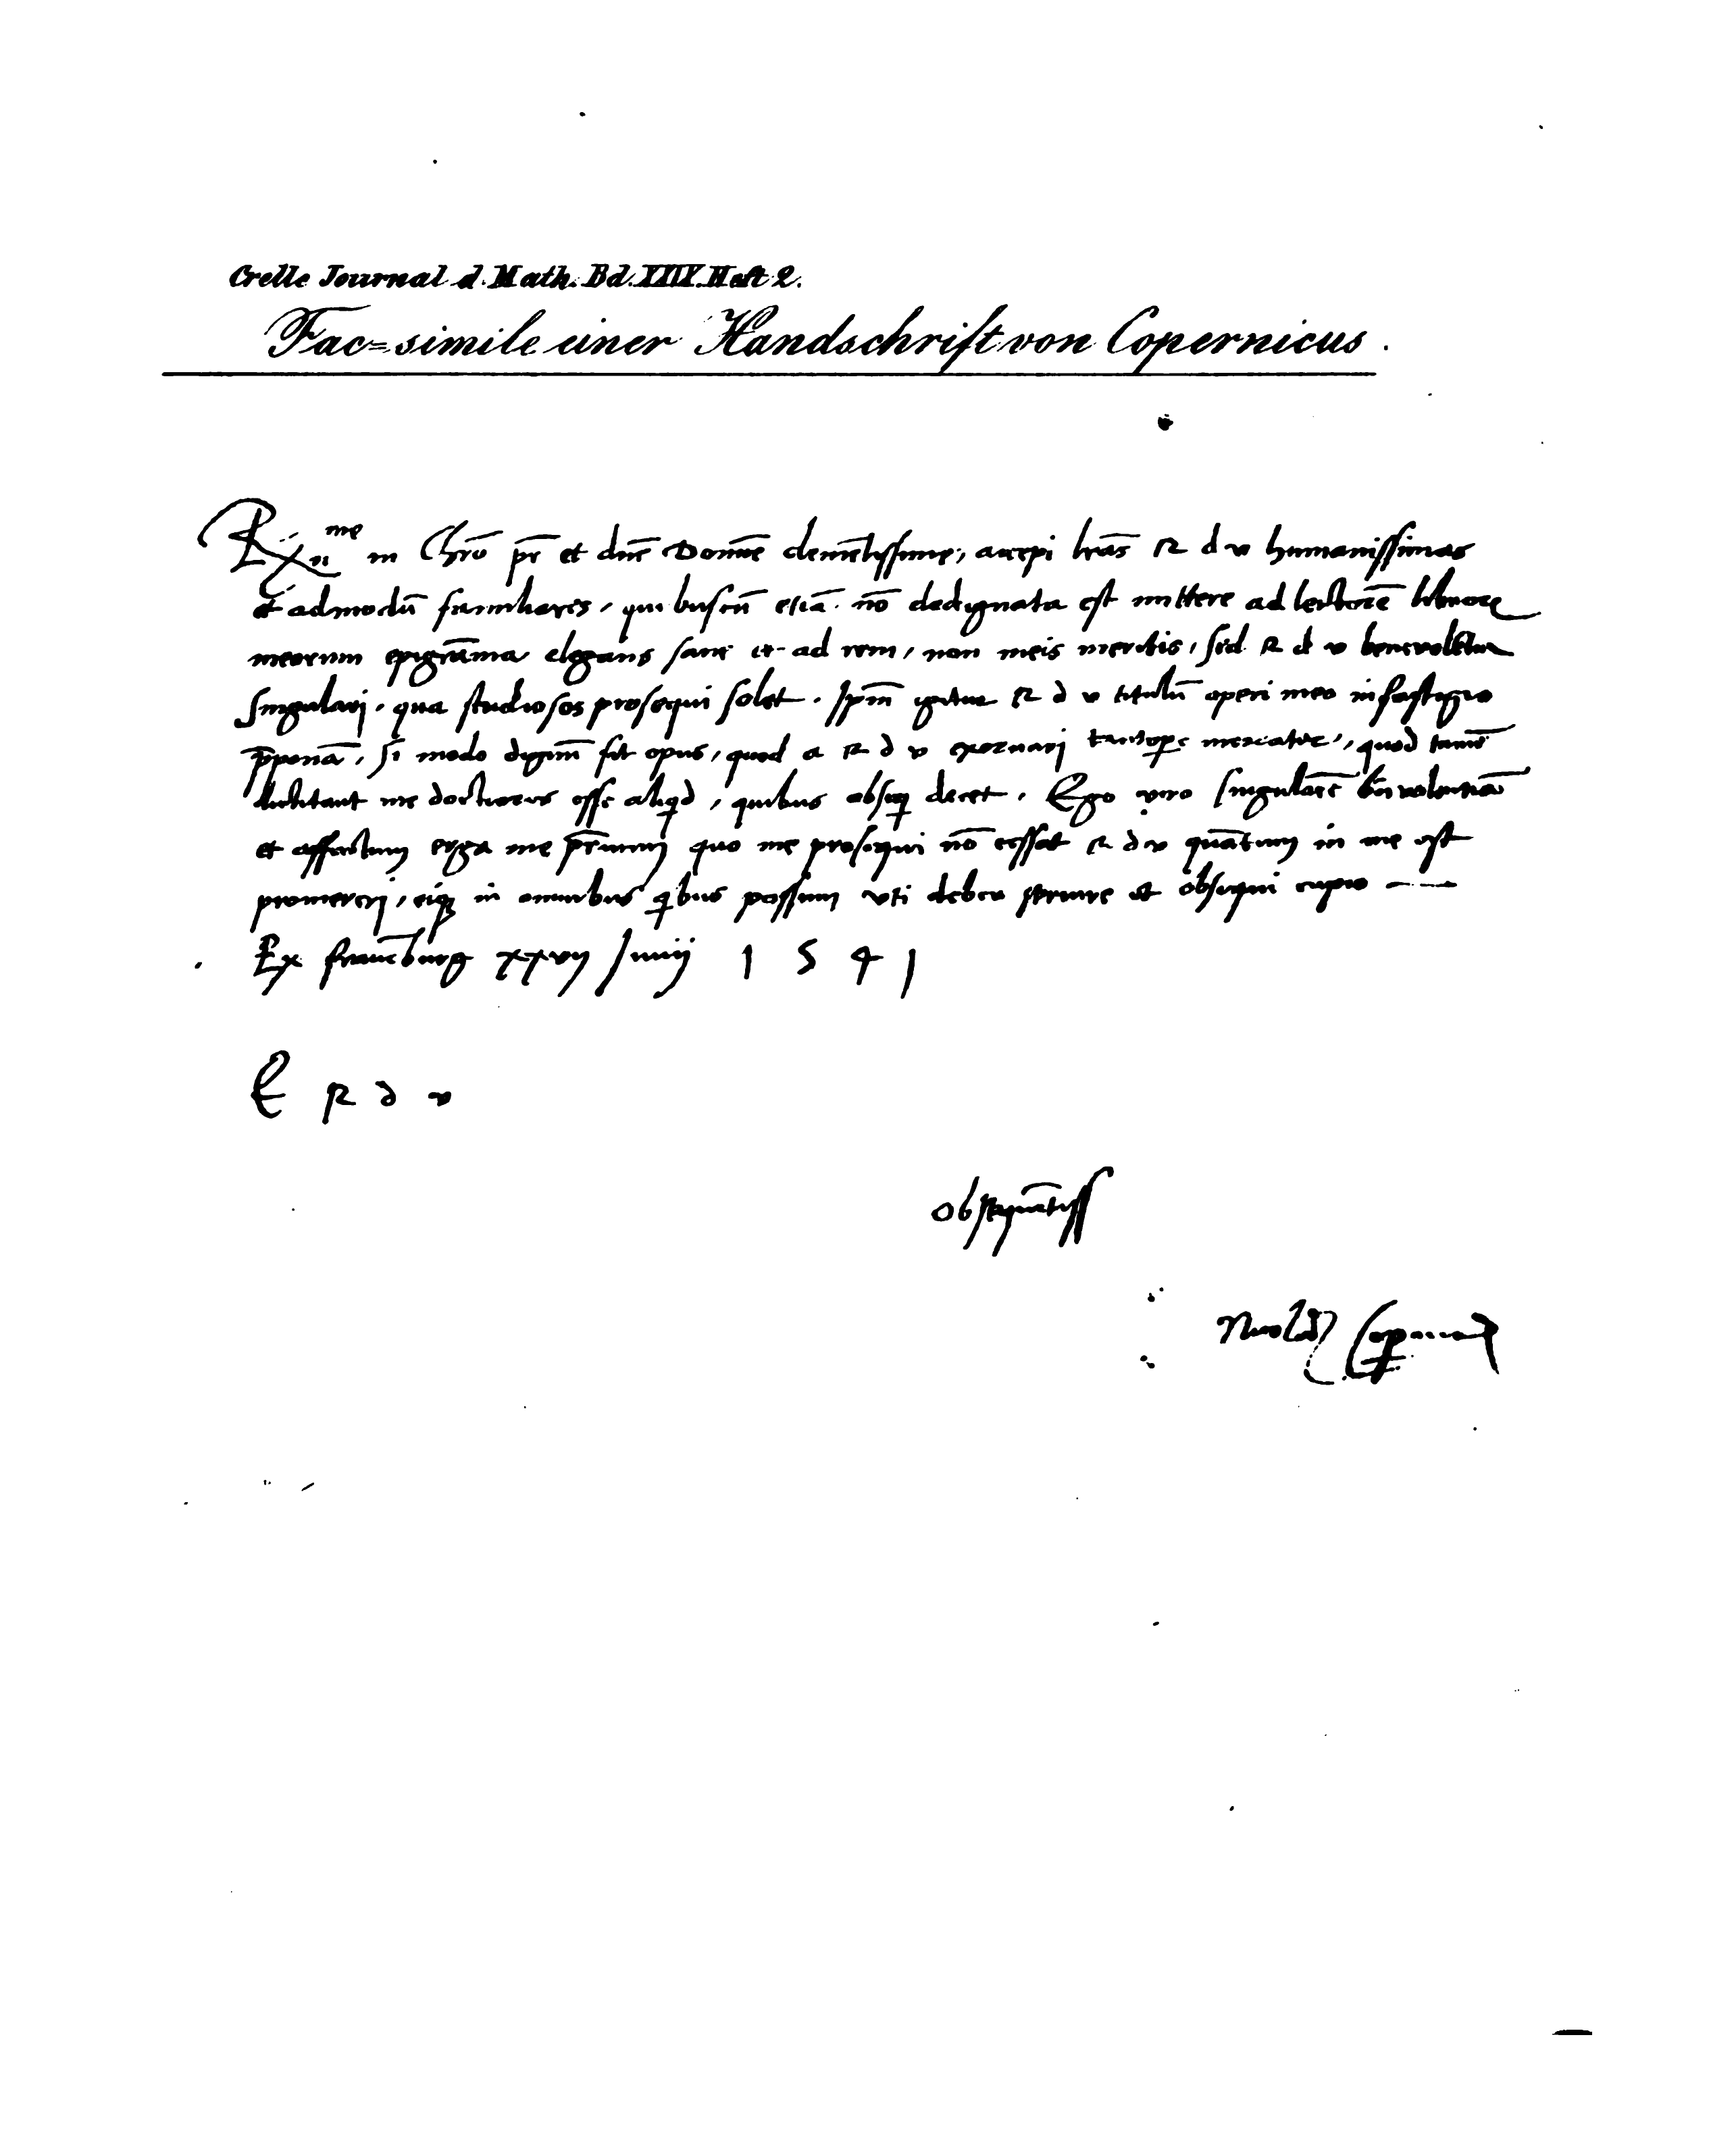 Crelle Journal d. Math. Bd. XXIX. Heft 2.
Fac=simile einer Handschrift von Copernicus.
in Chrō pr̄ et dn̄e Domīe clemētissime, accepi lrās R d v humanissimas
et admodū familiares, quibuscū etiā nō dedignata est mittere ad lectorē librorum
meorum epigrāma elegans sane et ad rem, non meis meritis, sed R d v
singulari, qua studiosos prosequi solet. Ipm̄ igitur R d v titulū operi meo in fastigio
p̄ponā, si modo dignū sit opus, quod a R d v exornari tantopere mereatur, quod tamē
dictitant me doctiores esse aliqd, quibus obseq decet. Ego vero singularē benivolentiā
et affectum erga me pr̄num quo me prosequi nō cessat R d v quātum in me est
promererj, eiq in omnibus qbus possum uti debeo servire et obsequi cupio
Ex fraueburg xxvij Junij 1541
E R d v
obsequētiss
Nicolaus Copernicus